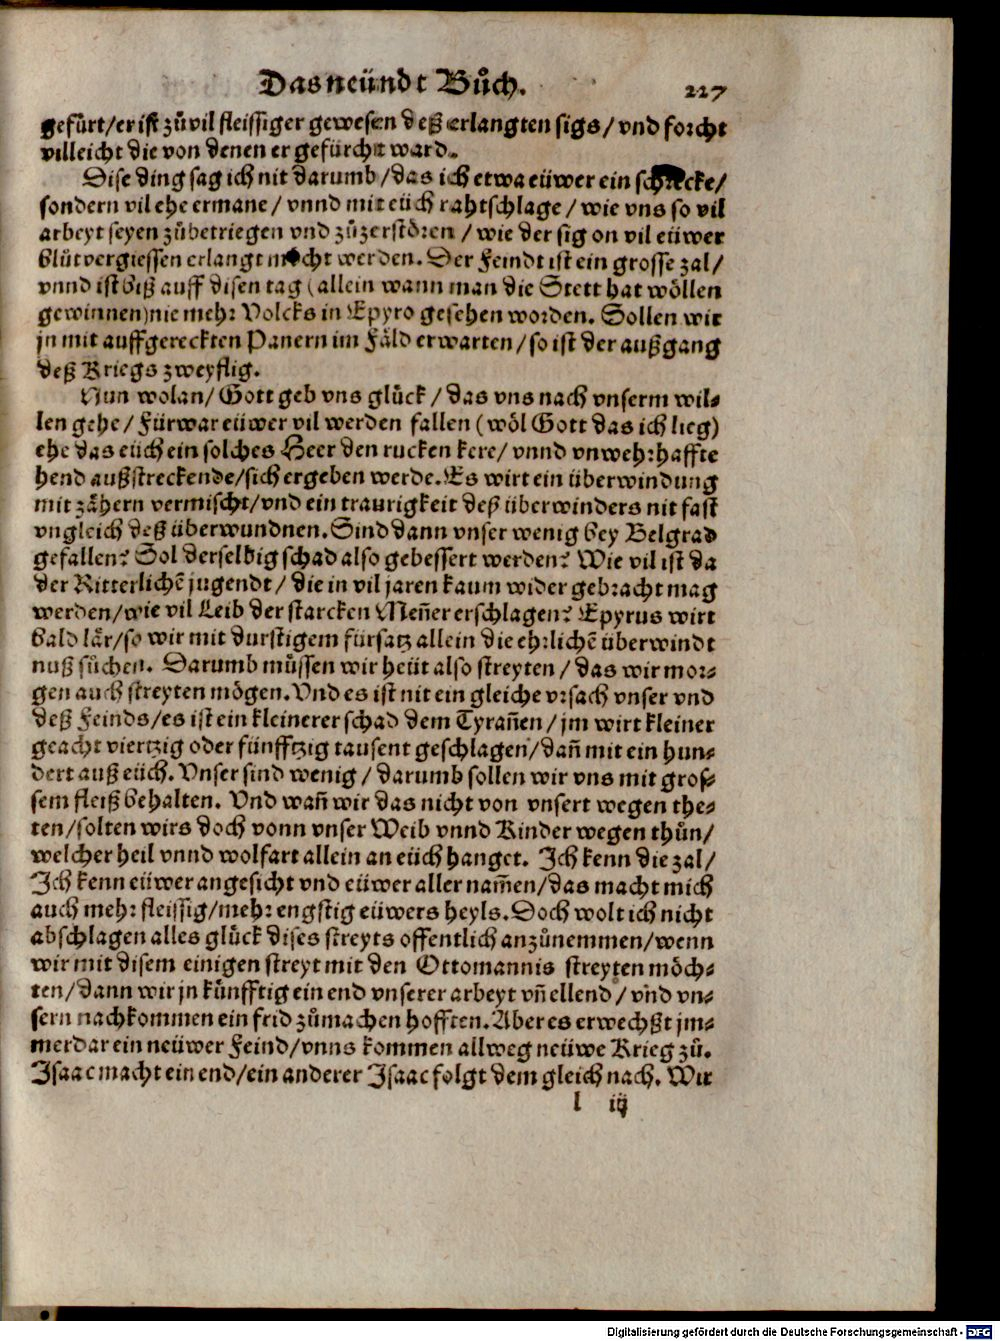 Das neündt Bůch. 227
gefürt/er ist zůvil fleissiger gewesen deß erlangten sigs/vnd forcht
villeicht die von denen er gefürcht ward.
Dise ding sag ich nit darumb/das ich etwa eüwer ein schrecke/
sondern vil ehe ermane/vnnd mit eüch rahtschlage/wie vns so vil
arbeyt seyen zůbetriegen vnd zůzerstören/wie der sig on vil eüwer
blůtvergiessen erlangt möcht werden. Der Feindt ist ein grosse zal/
vnnd ist biß auff disen tag (allein wann man die Stett hat wöllen
gewinnen) nie mehr Volcks in Epyro gesehen worden. Sollen wir
jn mit auffgereckten Panern im Fäld erwarten/so ist der außgang
deß Kriegs zweyflig.
Nun wolan/Gott geb vns glück/das vns nach vnserm wil⸗
len gehe/Fürwar eüwer vil werden fallen (wöl Gott das ich lieg)
ehe das eüch ein solches Heer den rucken kere/vnnd vnwehrhaffte
hend außstreckende/sich ergeben werde. Es wirt ein überwindung
mit zähern vermischt/vnd ein traurigkeit deß überwinders nit fast
vngleich deß überwundnen. Sind dann vnser wenig bey Belgrad
gefallen? Sol derselbig schad also gebessert werden? Wie vil ist da
der Ritterlichē jugendt/die in vil jaren kaum wider gebracht mag
werden/wie vil Leib der starcken Meñer erschlagen? Epyrus wirt
bald lär/so wir mit durstigem fürsatz allein die ehrlichē überwindt
nuß sůchen. Darumb müssen wir heüt also streyten/das wir mor⸗
gen auch streyten mögen. Vnd es ist nit ein gleiche vrsach vnser vnd
deß Feinds/es ist ein kleinerer schad dem Tyrañen/jm wirt kleiner
geacht viertzig oder fünfftzig tausent geschlagen/dañ mit ein hun⸗
dert auß eüch. Vnser sind wenig/darumb sollen wir vns mit gros⸗
sem fleiß behalten. Vnd wañ wir das nicht von vnsert wegen the⸗
ten/solten wirs doch vonn vnser Weib vnnd Kinder wegen thůn/
welcher heil vnnd wolfart allein an eüch hanget. Ich kenn die zal/
Ich kenn eüwer angesicht vnd eüwer aller nam̃en/das macht mich
auch mehr fleissig/mehr engstig eüwers heyls. Doch wolt ich nicht
abschlagen alles glück dises streyts offentlich anzůnemmen/wenn
wir mit disem einigen streyt mit den Ottomannis streyten möch⸗
ten/dann wir jn künfftig ein end vnserer arbeyt vñ ellend/vnd vn⸗
sern nachkommen ein frid zůmachen hofften. Aber es erwechßt jm⸗
merdar ein neüwer Feind/vnns kommen allweg neüwe Krieg zů.
Isaac macht ein end/ein anderer Isaac folgt dem gleich nach. Wir
l iij
Digitalisierung gefördert durch die Deutsche Forschungsgemeinschaft - DFG